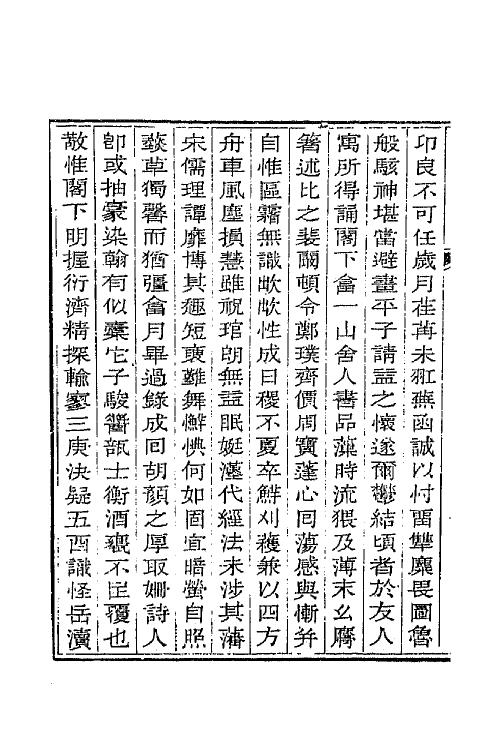 卬良不可任歲月荏苒未𢎞燕函誠以忖酉犨麋畏圖魯
般駭神堪當避畫平子請益之懷遂爾鬱結頃者於友人
寓所得誦閣下畣一山舍人書品藻時流猥及薄末幺麿
箸述比之裴爾頓令鄭璞齊價周寶蓬心回蕩感與慚并
自惟區霿無識歐歐性成日稷不夏卒鮮刈穫兼以四方
舟車風塵損慧雖祝琯朗無益眠娗漢代經法未涉其藩
宋儒理譚靡博其趣短袖難舞懈惧何如固宜暗螢自照
蓺草獨馨而猶彊畣月畢過錄成回胡顏之厚取姍詩人
卽或抽豪染翰有似橐佗子駿醬瓿士衡酒甕不足覆也
敬惟閣下明握衍濟精探輸寥三庚決疑五酉識怪岳瀆